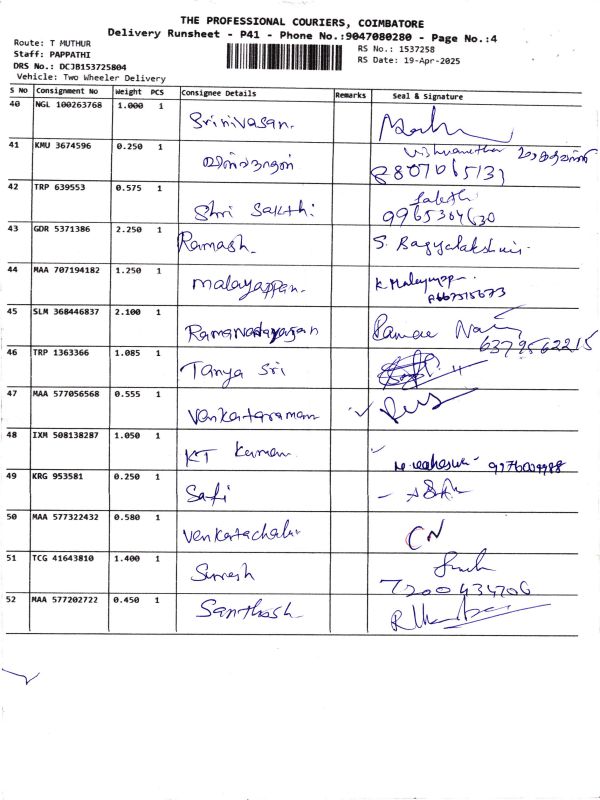 THE PROFESSIONAL COURIERS, COIMBATORE
Delivery Runsheet - P41 - Phone No.:9047080280 - Page No.:4
Route: T MUTHUR
Staff: PAPPATHI
DRS No.: DCJB153725804
Vehicle: Two Wheeler Delivery
RS No.: 1537258
RS Date: 19-Apr-2025
S No Consignment No Weight PCS Consignee Details Remarks Seal & Signature
40 NGL 100263768 1.000 1 Srinivasan.
41 KMU 3674596 0.250 1 விஸ்வநாதன் 8807065131
42 TRP 639553 0.575 1 Shri Sakthi 9965304630
43 GDR 5371386 2.250 1 Ramash. S. Bagyalakshmi.
44 MAA 707194182 1.250 1 malayappan. K. Malayappan
45 SLM 368446837 2.100 1 Ramanarayanan 6379562215
46 TRP 1363366 1.085 1 Tanya Sri
47 MAA 577056568 0.555 1 Venkataraman
48 IXM 508138287 1.050 1 KT Kumaran
49 KRG 953581 0.250 1 Safi
50 MAA 577322432 0.580 1 Venkatachalam CN
51 TCG 41643810 1.400 1 Suresh 7200434706
52 MAA 577202722 0.450 1 Santhosh